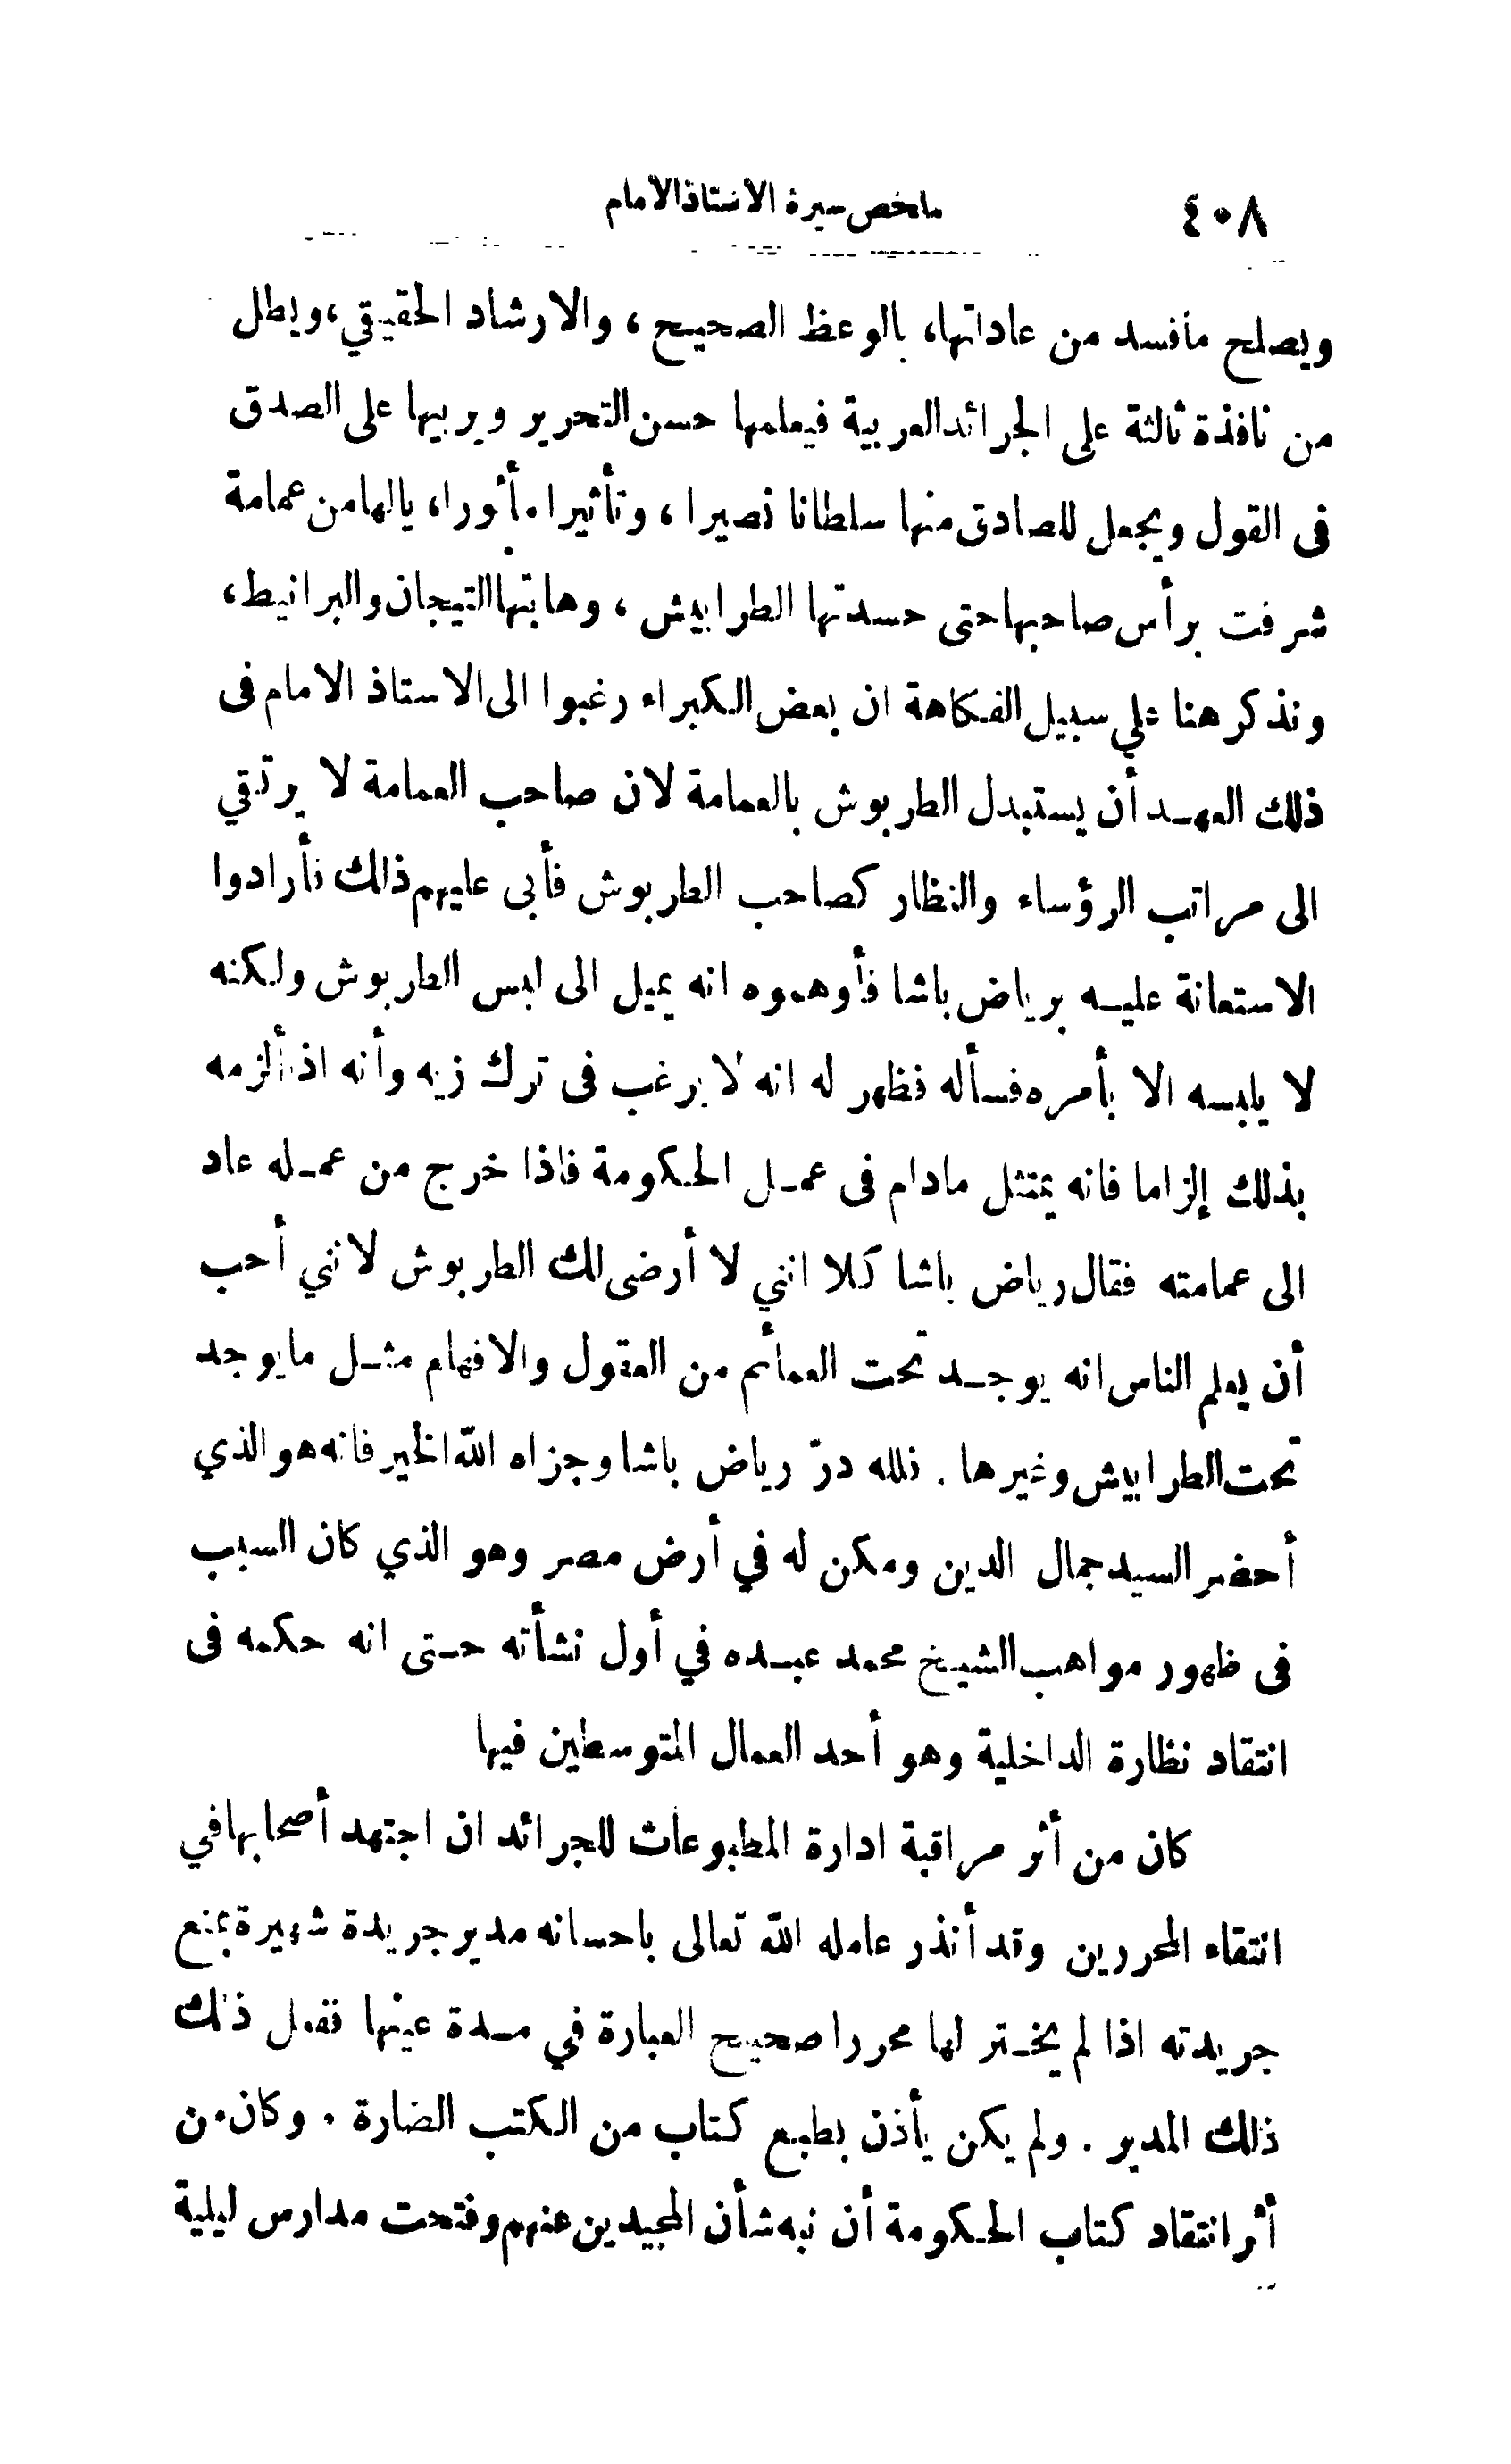 ٤٠٨ ملخص سيرة الاستاذ الامام
ويصلح مافسد من عاداتها، بالوعظ الصحيح ، والارشاد الحقيقي، ويطل
من نافذة ثالثة على الجرائد العربية فيعلمها حسن التحرير ويربيها على الصدق
فى القول ويجعل للصادق منها سلطانا نصيرا ، وتأثيرا مأثورا، يالها من عمامة
شرفت برأس صاحبها حتى حسدتها الطرابيش ، وهابتها التيجان والبرانيط،
ونذكر هنا علي سبيل الفكاهة ان بعض الكبراء رغبوا الى الاستاذ الامام فى
ذلك العهد أن يستبدل الطربوش بالعمامة لان صاحب العمامة لا يرتقي
الى مراتب الرؤساء والنظار كصاحب الطربوش فأبى عليهم ذلك فأرادوا
الاستعانة عليه برياض باشا فأوهموه انه يميل الى لبس الطربوش ولكنه
لا يلبسه الا بأمره فسأله فظهر له انه لا يرغب فى ترك زيه وأنه اذا ألزمه
بذلك إلزاما فانه يمتثل مادام فى عمل الحكومة فاذا خرج من عمله عاد
الى عمامته فقال رياض باشا كلا انني لا أرضى لك الطربوش لانني أحب
أن يعلم الناس انه يوجد تحت العمائم من العقول والافهام مثل مايوجد
تحت الطرابيش وغيرها . فلله درّ رياض باشا وجزاه اللّه الخير فانه هو الذي
أحضر السيد جمال الدين ومكن له في أرض مصر وهو الذي كان السبب
فى ظهور مواهب الشيخ محمد عبده في أول نشأته حتى انه حكمه فى
انتقاد نظارة الداخلية وهو أحد العمال المتوسطين فيها
كان من أثر مراقبة ادارة المطبوعات للجرائد ان اجتهد أصحابها في
انتقاء المحررين وقد أنذر عامله اللّه تعالى باحسانه مدير جريدة شهيرة بمنع
جريدته اذا لم يختر لها محررا صحيح العبارة في مدة عينها ففعل ذلك
ذلك المدير . ولم يكن يأذن بطبع كتاب من الكتب الضارة . وكان من
أثر انتقاد كتاب الحكومة أن نبه شأن المجيدين عنهم وفتحت مدارس ليلية